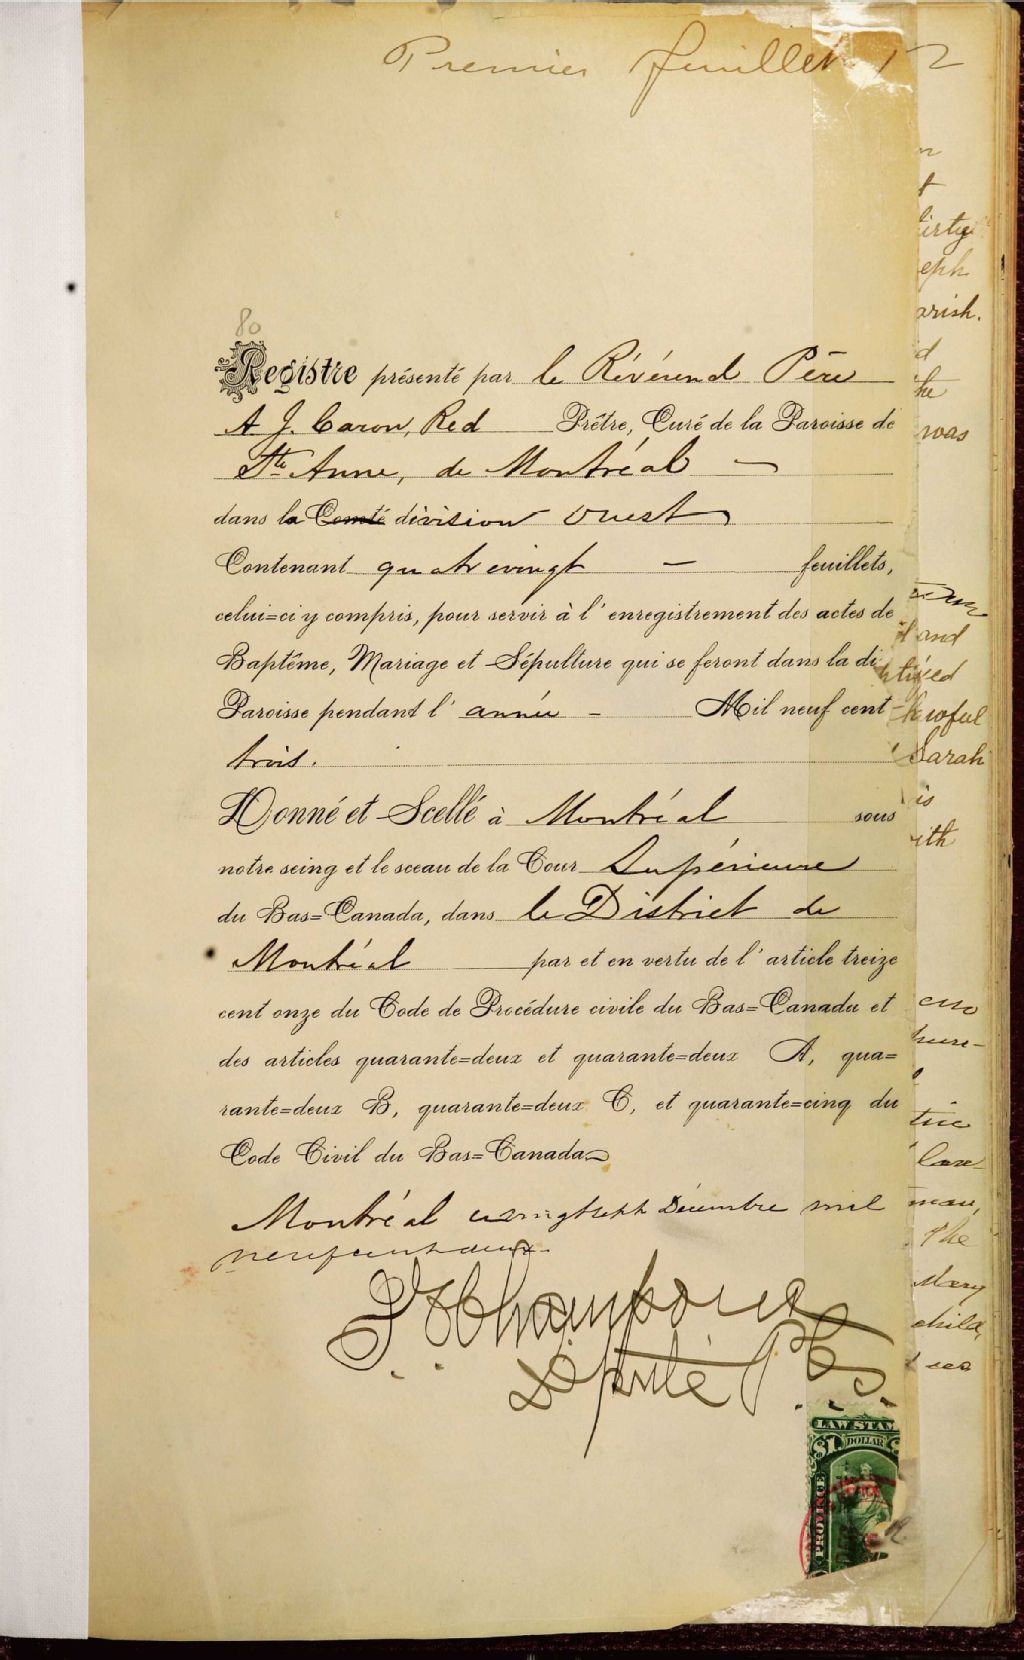 Premier feuillet
80
Registre présenté par le Révérend Père
A J. Caron, Red Prêtre, Curé de la Paroisse de
Ste Anne, de Montréal —
dans la Comté division ouest
Contenant quatrevingt — feuillets,
celui=ci y compris, pour servir à l'enregistrement des actes de
Baptême, Mariage et Sépulture qui se feront dans la di
Paroisse pendant l'année — Mil neuf cent
trois.
Donné et Scellé à Montréal sous
notre seing et le sceau de la Cour Supérieure
du Bas=Canada, dans le District de
Montréal par et en vertu de l'article treize
cent onze du Code de Procédure civile du Bas=Canada et
des articles quarante=deux et quarante=deux A, qua=
rante=deux B, quarante=deux C, et quarante=cinq du
Code Civil du Bas=Canada
Montréal vingtsept Décembre mil
neufcentdeux.
Député P C S
LAW STAM
$1 DOLLAR
PROVINCE
irty
eph
arish.
d
he
was
and
tized
lawful
Sarah
is
ith
tine
man,
the
Mary
child,